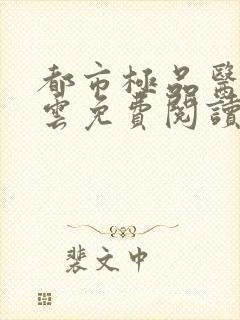 都市極品醫
雲免費閱讀
裴文中